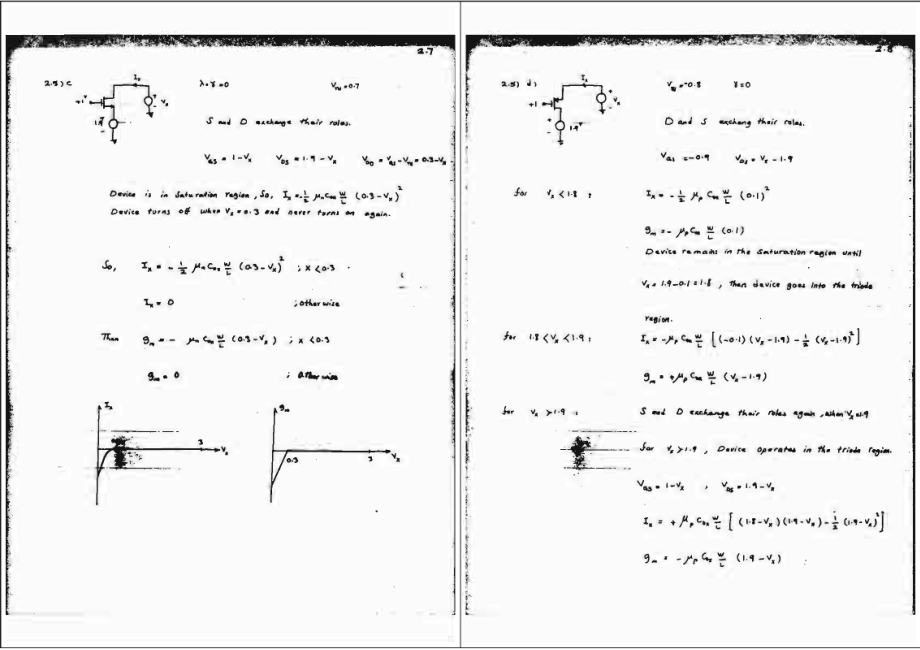 2.7
2.5) c
I_x
λ=γ=0
V_TH=0.7
+1^V
+
V_x
-
+
1.9^V
-
S and D exchange their roles.
V_GS = 1-V_x V_DS = 1.9-V_x V_OD = V_GS-V_TH = 0.3-V_x
Device is in Saturation region, So, I_x = -1/2 μ_n C_ox W/L (0.3-V_x)^2
Device turns off when V_x = 0.3 and never turns on again.
So, I_x = -1/2 μ_n C_ox W/L (0.3-V_x)^2 ; x <0.3
I_x = 0 ; otherwise
Then g_m = - μ_n C_ox W/L (0.3-V_x) ; x <0.3
g_m = 0 ; Otherwise
I_x
3
V_x
g_m
0.3
3
V_x
2.8
2.5) d)
I_x
V_TH = -0.8 γ=0
+1^V
+
V_x
-
+
1.9^V
-
D and S exchang their roles.
V_GS = -0.9 V_DS = V_x - 1.9
for V_x < 1.8 : I_x = -1/2 μ_p C_ox W/L (0.1)^2
g_m = - μ_p C_ox W/L (0.1)
Device remains in the Saturation region until
V_x = 1.9-0.1 = 1.8 , Then device goes into the triode
region.
for 1.8 < V_x < 1.9 : I_x = -μ_p C_ox W/L [(-0.1)(V_x-1.9) - 1/2 (V_x-1.9)^2]
g_m = +μ_p C_ox W/L (V_x-1.9)
for V_x >1.9 : S and D exchange their roles again, when V_x=1.9
for V_x >1.9 , Device operates in the triode region.
V_GS = 1-V_x , V_DS = 1.9-V_x
I_x = + μ_p C_ox W/L [(1.8-V_x)(1.9-V_x) - 1/2 (1.9-V_x)^2]
g_m = -μ_p C_ox W/L (1.9-V_x)